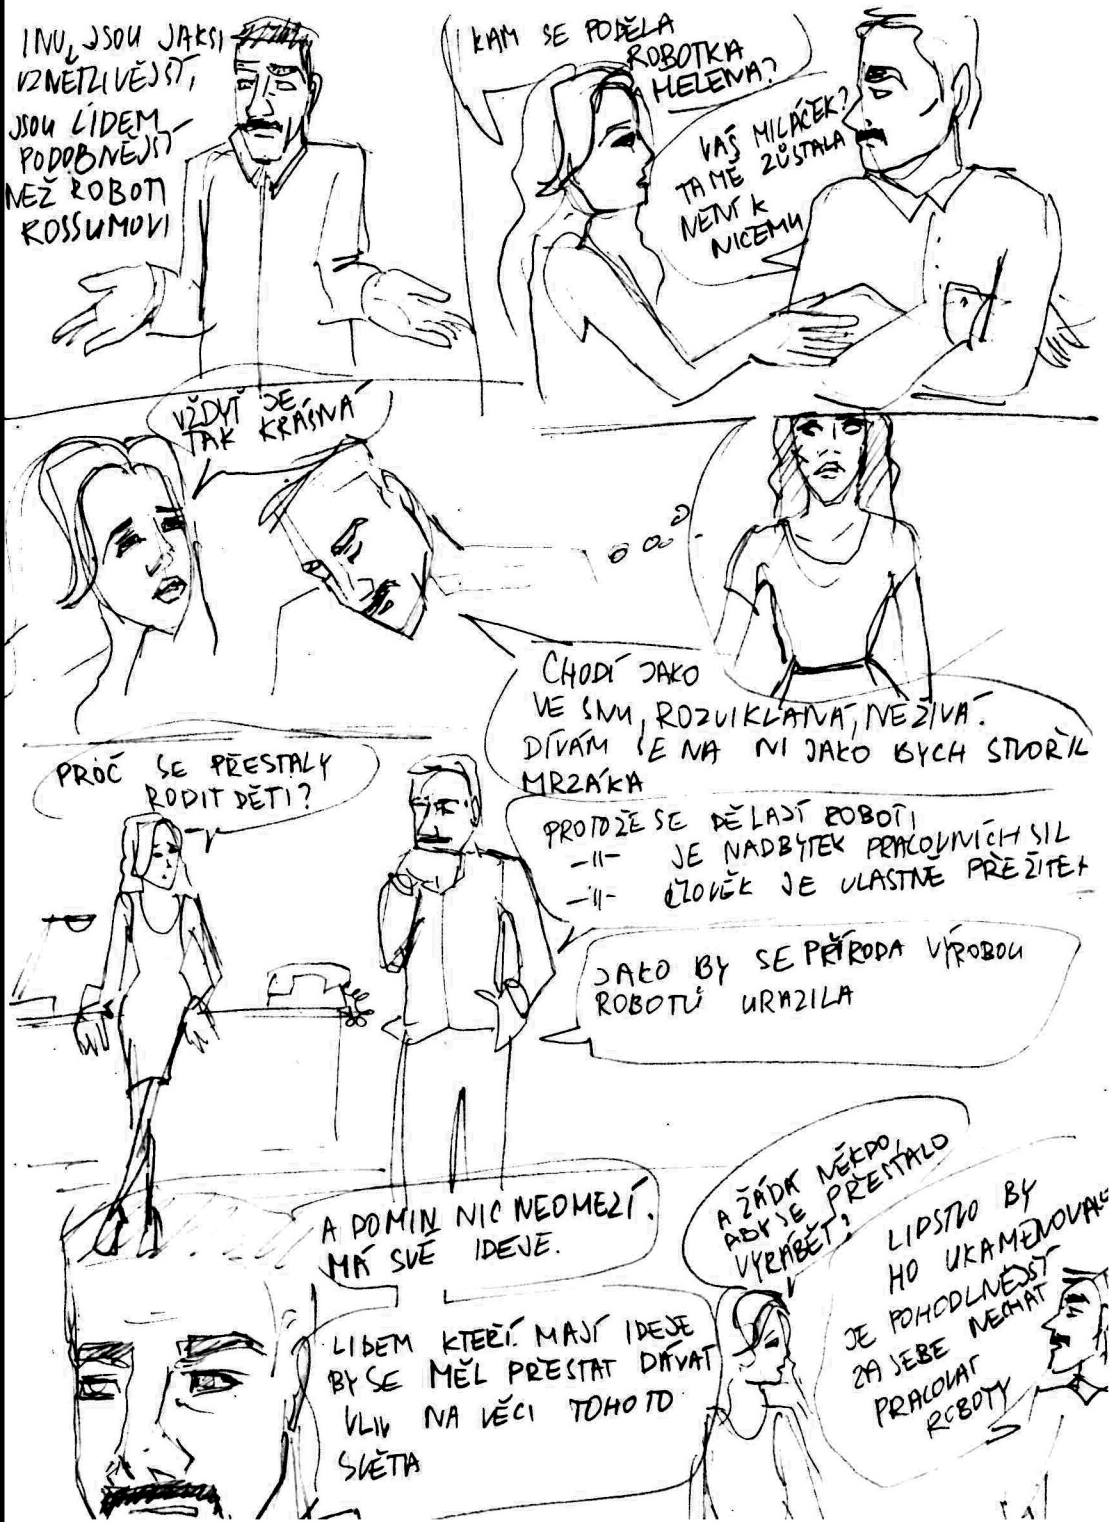 INU, JSOU JAKSI
VZNĚTLIVĚJŠÍ,
JSOU LIDEM
PODOBNĚJŠÍ
NEŽ ROBOTI
ROSSUMOVI
KAM SE PODĚLA
ROBOTKA
HELENA?
VÁŠ MILÁČEK?
TA MĚ ZŮSTALA
NENÍ K
NICEMU
VŽDYŤ JE
TAK KRÁSNÁ
CHODÍ JAKO
VE SNU, ROZVIKLANÁ, NEŽIVÁ.
DÍVÁM SE NA NI JAKO BYCH STVOŘIL
MRZÁKA
PROČ SE PŘESTALY
RODIT DĚTI?
PROTOŽE SE DĚLAJÍ ROBOTI
-11- JE NADBYTEK PRACOVNÍCH SIL
-11- ČLOVĚK JE VLASTNĚ PŘEŽITEK
JAKO BY SE PŘÍRODA VÝROBOU
ROBOTŮ URAZILA
A DOMIN NIC NEOMEZÍ.
MÁ SVÉ IDEJE.
LIDEM KTEŘÍ MAJÍ IDEJE
BY SE MĚL PŘESTAT DÁVAT
VLIV NA VĚCI TOHOTO
SVĚTA
A ŽÁDÁ NĚKDO,
ABY SE PŘESTALO
VYRÁBĚT?
LIDSTVO BY
HO UKAMENOVALO
JE POHODLNĚJŠÍ
ZA SEBE NECHAT
PRACOVAT
ROBOTY